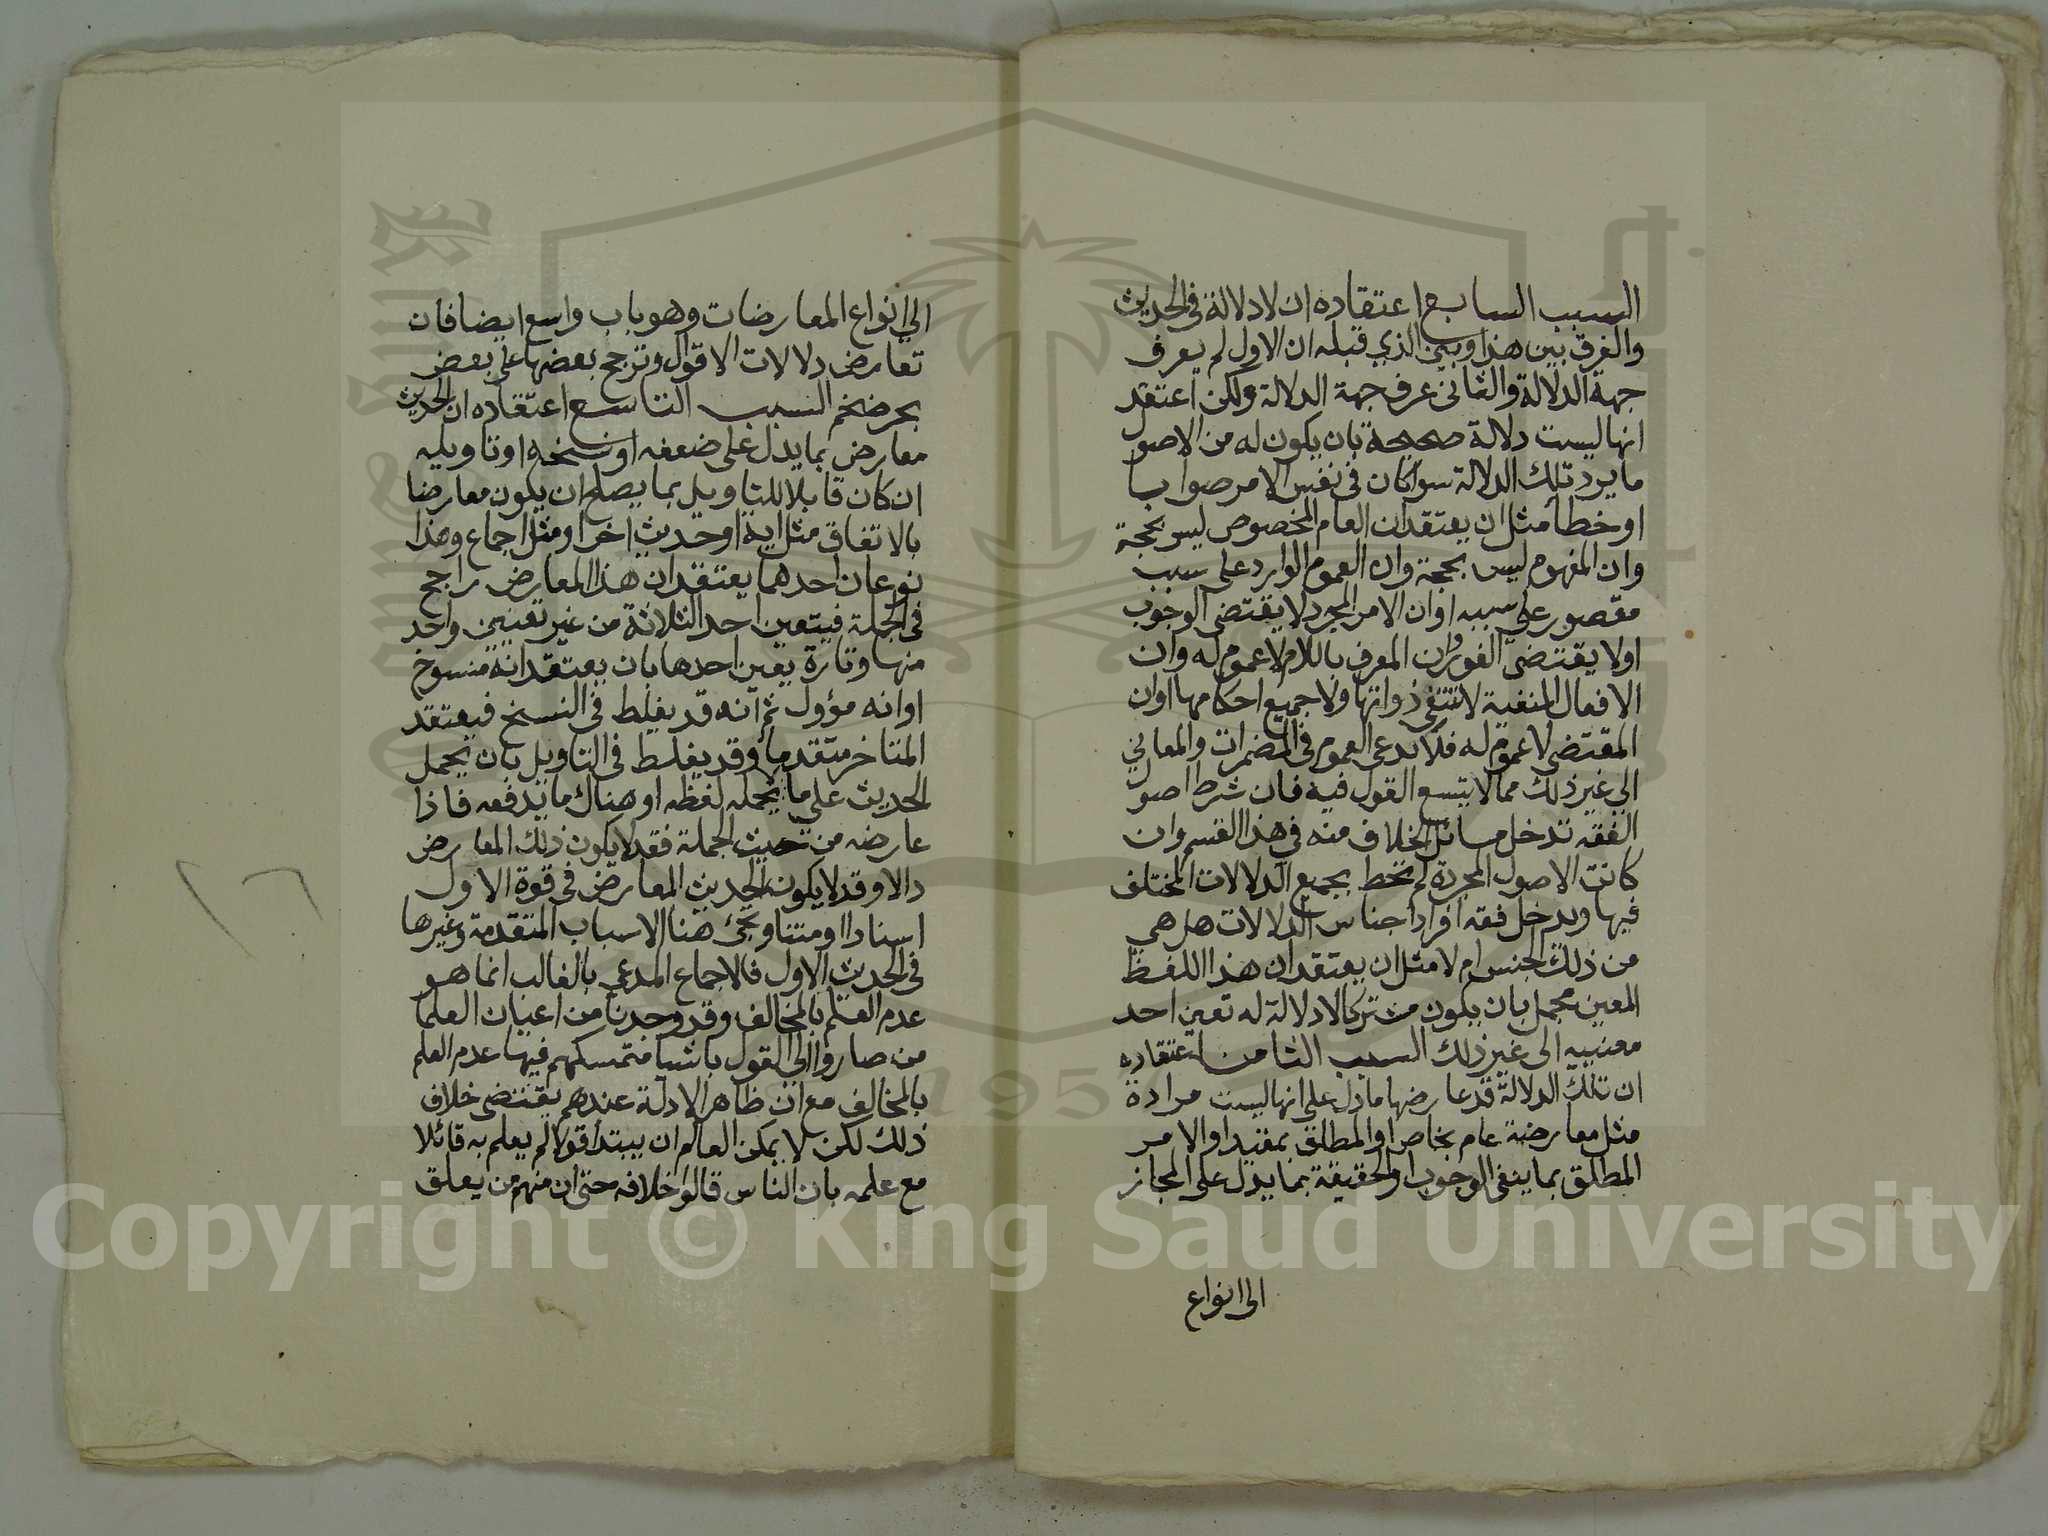 السبب السابع اعتقاده ان لا دلالة في الحديث
والفرق بين هذا وبين الذي قبله ان الاول لم يعرف
جهة الدلالة والثاني عرف جهة الدلالة ولكن اعتقد
انها ليست دلالة صحيحة بان يكون له من الاصول
ما يرد تلك الدلالة سوا كان في نفس الامر صوابا
او خطأ مثل ان يعتقد ان العام المخصوص ليس بحجة
وان المفهوم ليس بحجة وان العموم الوارد على سبب
مقصور على سببه او ان الامر المجرد لا يقتضي الوجوب
اولا يقتضي الفور وان المعرف باللام لا عموم له وان
الافعال المنفية لا تنتفي ذواتها ولا جميع احكامها او ان
المقتضى لا عموم له فلا يدعى العموم في المضمرات والمعاني
الى غير ذلك مما لا يتسع القول فيه فان شرط اصول
الفقه تدخل مسائل الخلاف منه في هذا القسم وان
كانت الاصول المجردة لم تحط بجميع الدلالات المختلف
فيها ويدخل فقه افراد اجناس الدلالات هل هي
من ذلك الجنس ام لا مثل ان يعتقد ان هذا اللفظ
المعين مجمل بان يكون مشتركا لا دلالة له تعين احد
معنييه الى غير ذلك السبب الثامن اعتقاده
ان تلك الدلالة قد عارضها ما دل على انها ليست مرادة
مثل معارضة عام بخاص او المطلق بمقيد او الامر
المطلق بما ينفي الوجوب او الحقيقة بما يدل على المجاز
الى انواع
الى انواع المعارضات وهو باب واسع ايضا فان
تعارض دلالات الاقوال وترجح بعضها على بعض
بحر ضخم السبب التاسع اعتقاده ان الحديث
معارض بما يدل على ضعفه او نسخه او تاويله
ان كان قابلا للتاويل بما يصلح ان يكون معارضا
بالاتفاق مثل اية او حديث اخر او مثل اجماع وهذا
نوعان احدهما يعتقد ان هذا المعارض راجح
في الجملة فيتعين احد الثلاثة من غير تعيين واحد
منها وتارة يعين احدها بان يعتقد انه منسوخ
او انه مؤول ثم انه قد يغلط في النسخ فيعتقد
المتاخر متقدما وقد يغلط في التاويل بان يحمل
الحديث على ما يحمله لفظه او هناك ما يدفعه فاذا
عارضه من حيث الجملة فقد لا يكون ذلك المعارض
دالا وقد لا يكون الحديث المعارض في قوة الاول
اسنادا او متنا وتجئ هنا الاسباب المتقدمة وغيرها
في الحديث الاول فالاجماع المدعي بالغالب انما هو
عدم العلم بالمخالف وقد وجدنا من اعيان العلما
من صاروا الى القول باشيا متمسكهم فيها عدم العلم
بالمخالف مع ان ظاهر الادلة عندهم يقتضي خلاف
ذلك لكن لا يمكن العالم ان يبتدأ قولا لم يعلم به قائلا
مع علمه بان الناس قالوا خلافه حتى ان منهم من يعلق
Copyright © King Saud University